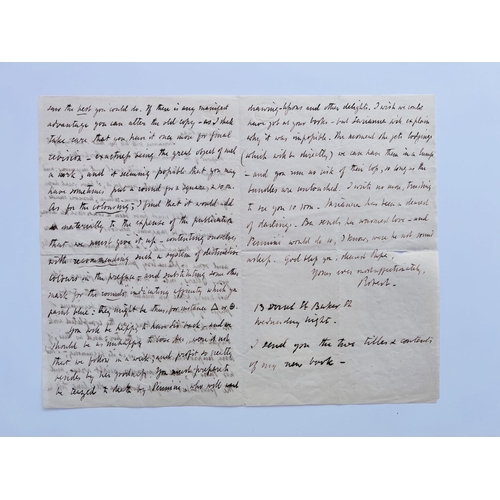 sure the best you could do. If there is any manifest
advantage you can alter the old copy - as I shall
take care that you have it once more for final
revision - exactness being the great object of such
a work; and it seeming possible that you may
have sometimes put a round for a square, & so on.
As for the colouring; I find that it would add
so materially to the expense of the publication
that we must give it up - contenting ourselves
with recommending such a system of distinctive
colours in the preface - and substituting some other
mark for the rounds indicating affinity which you
paint blue: they might be thus, for instance
You will be happy to have his back - and we
should be as unhappy to lose
that we follow in a week; and profit so
besides by her
be teized to death by Pennini - who will want
drawing-lessons and other delights. I wish we could
have got at your books - but Sarianna will explain
why it was impossible. The moment she gets lodgings
(which will be directly) we can have them in a lump
- and you run no risk of their loss, so long as the
bundles are untouched. I write no more, trusting
to see you so soon. Sarianna has been a dearest
of darlings. Ba sends her warmest love - and
Pennini would do so, I know, were he not sound
asleep. God bless you, dearest Papa.
Yours ever most affectionately,
Robert.
13 Dorset St Baker St
Wednesday Night.
I send you the two titles & contents
of my new book -